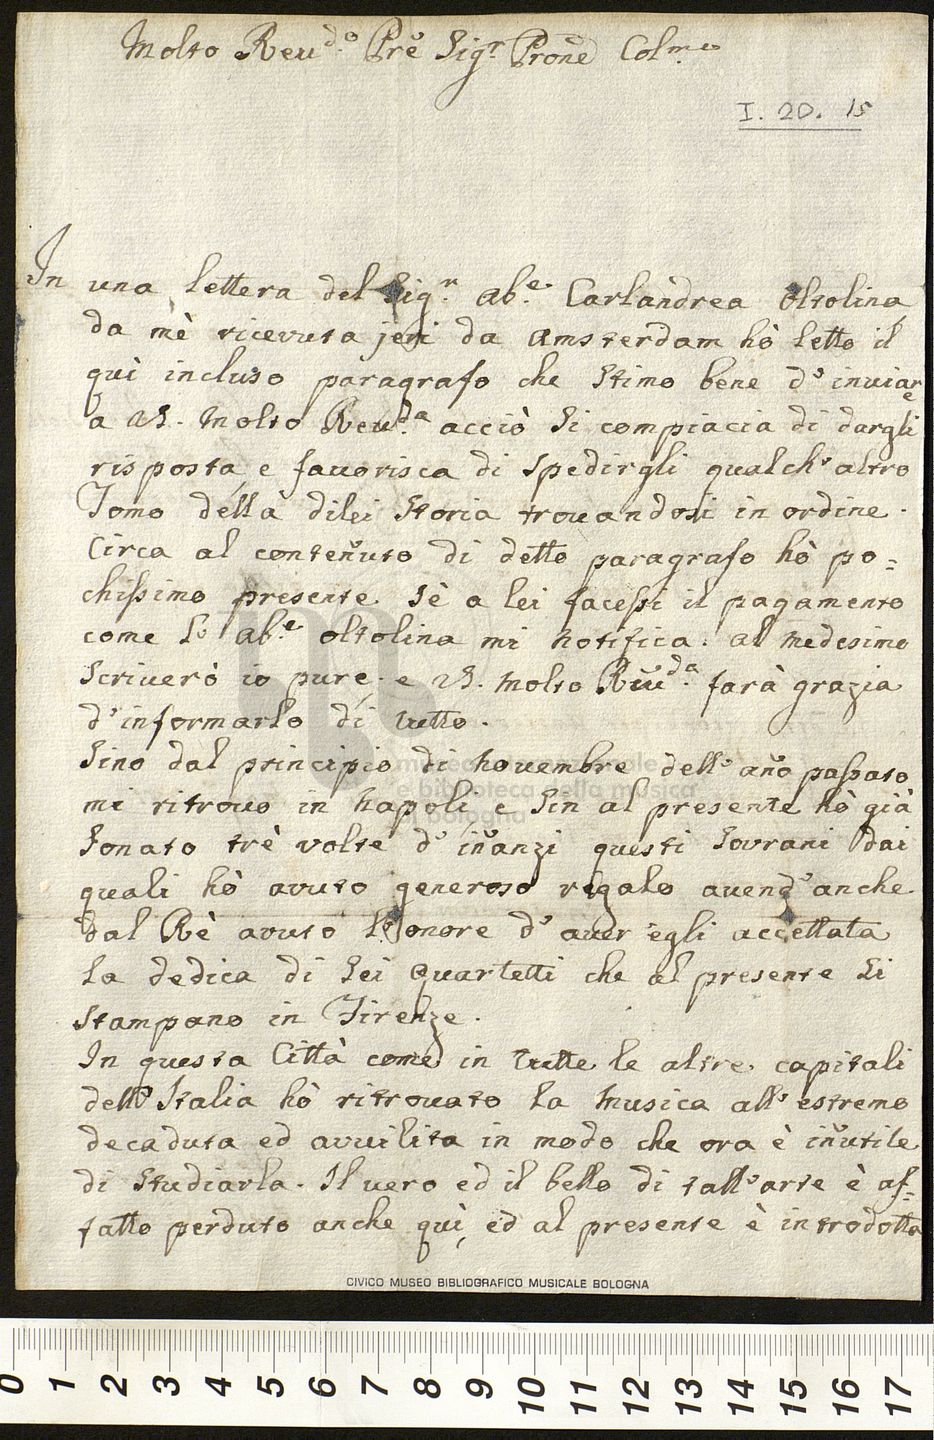 Molto Reu.do Prẽ Sig.r Prone Col.mo
I. 20. 15
In una lettera del Sig.r Ab.e Carlandrea Oltolina
da mè ricevuta jeri da Amsterdam hò letto il
quì incluso paragrafo che stimo bene d'inviare
a V.S. Molto Reu.da acciò si compiacia di dargli
risposta, e favorisca di spedirgli qualch'altro
Tomo della dilei Storia trouandosi in ordine.
Circa al conteñuto di detto paragrafo hò po=
chissimo presente sè a lei facessi il pagamento
come l'Ab.e Oltolina mi notifica. Al medesimo
scriuerò io pure. e V.S. Molto Reũ.da farà grazia
d'informarlo di tutto.
Sino dal principio di Nouembre dell'año passato
mi ritrouo in Napoli, e sin al presente hò già
sonato trè volte d'iñanzi questi Sovrani dai
quali hò avuto generoso regalo auend'anche
dal Rè avuto l'onore d'auer egli accettata
la dedica di sei Quartetti che al presente si
stampano in Firenze.
In questa Città come in tutte le altre capitali
dell'Italia hò ritrouato la Musica all'estremo
decaduta ed avvilita in modo che ora è iñutile
di studiarla. Il uero ed il bello di tall'arte è af=
fatto perduto anche quì, ed al presente è introdotta
museo internazionale
e biblioteca della musica
di bologna
CIVICO MUSEO BIBLIOGRAFICO MUSICALE BOLOGNA
0 1 2 3 4 5 6 7 8 9 10 11 12 13 14 15 16 17